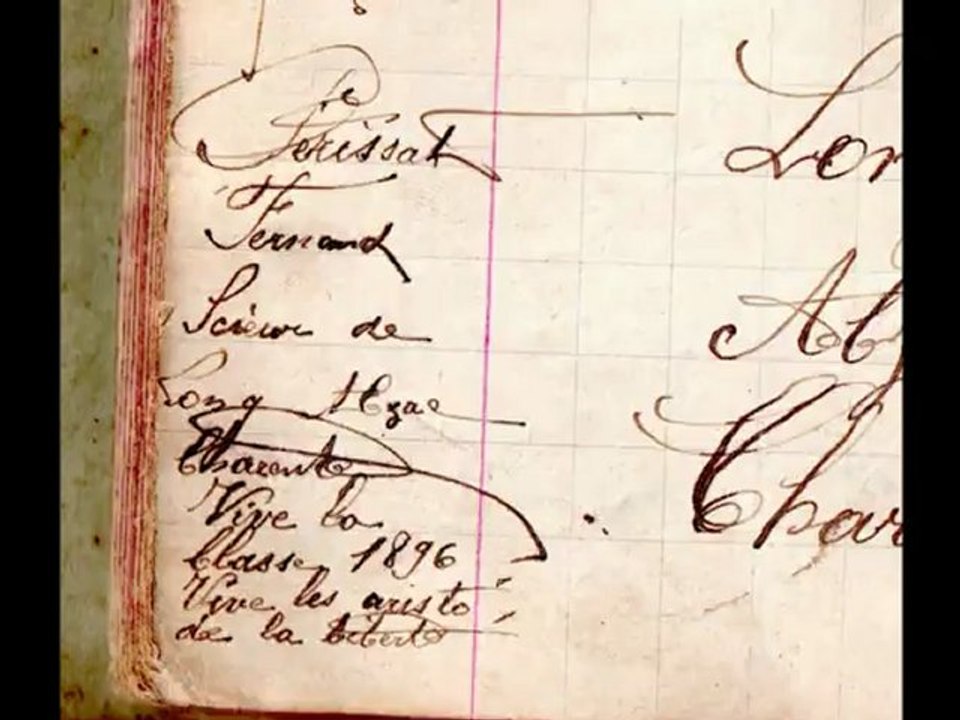 Périssat
Fernand
Scieur de
Long Abzac
Charente
Vive la
Classe 1896
Vive les aristo
de la
Lon
Ab
Char